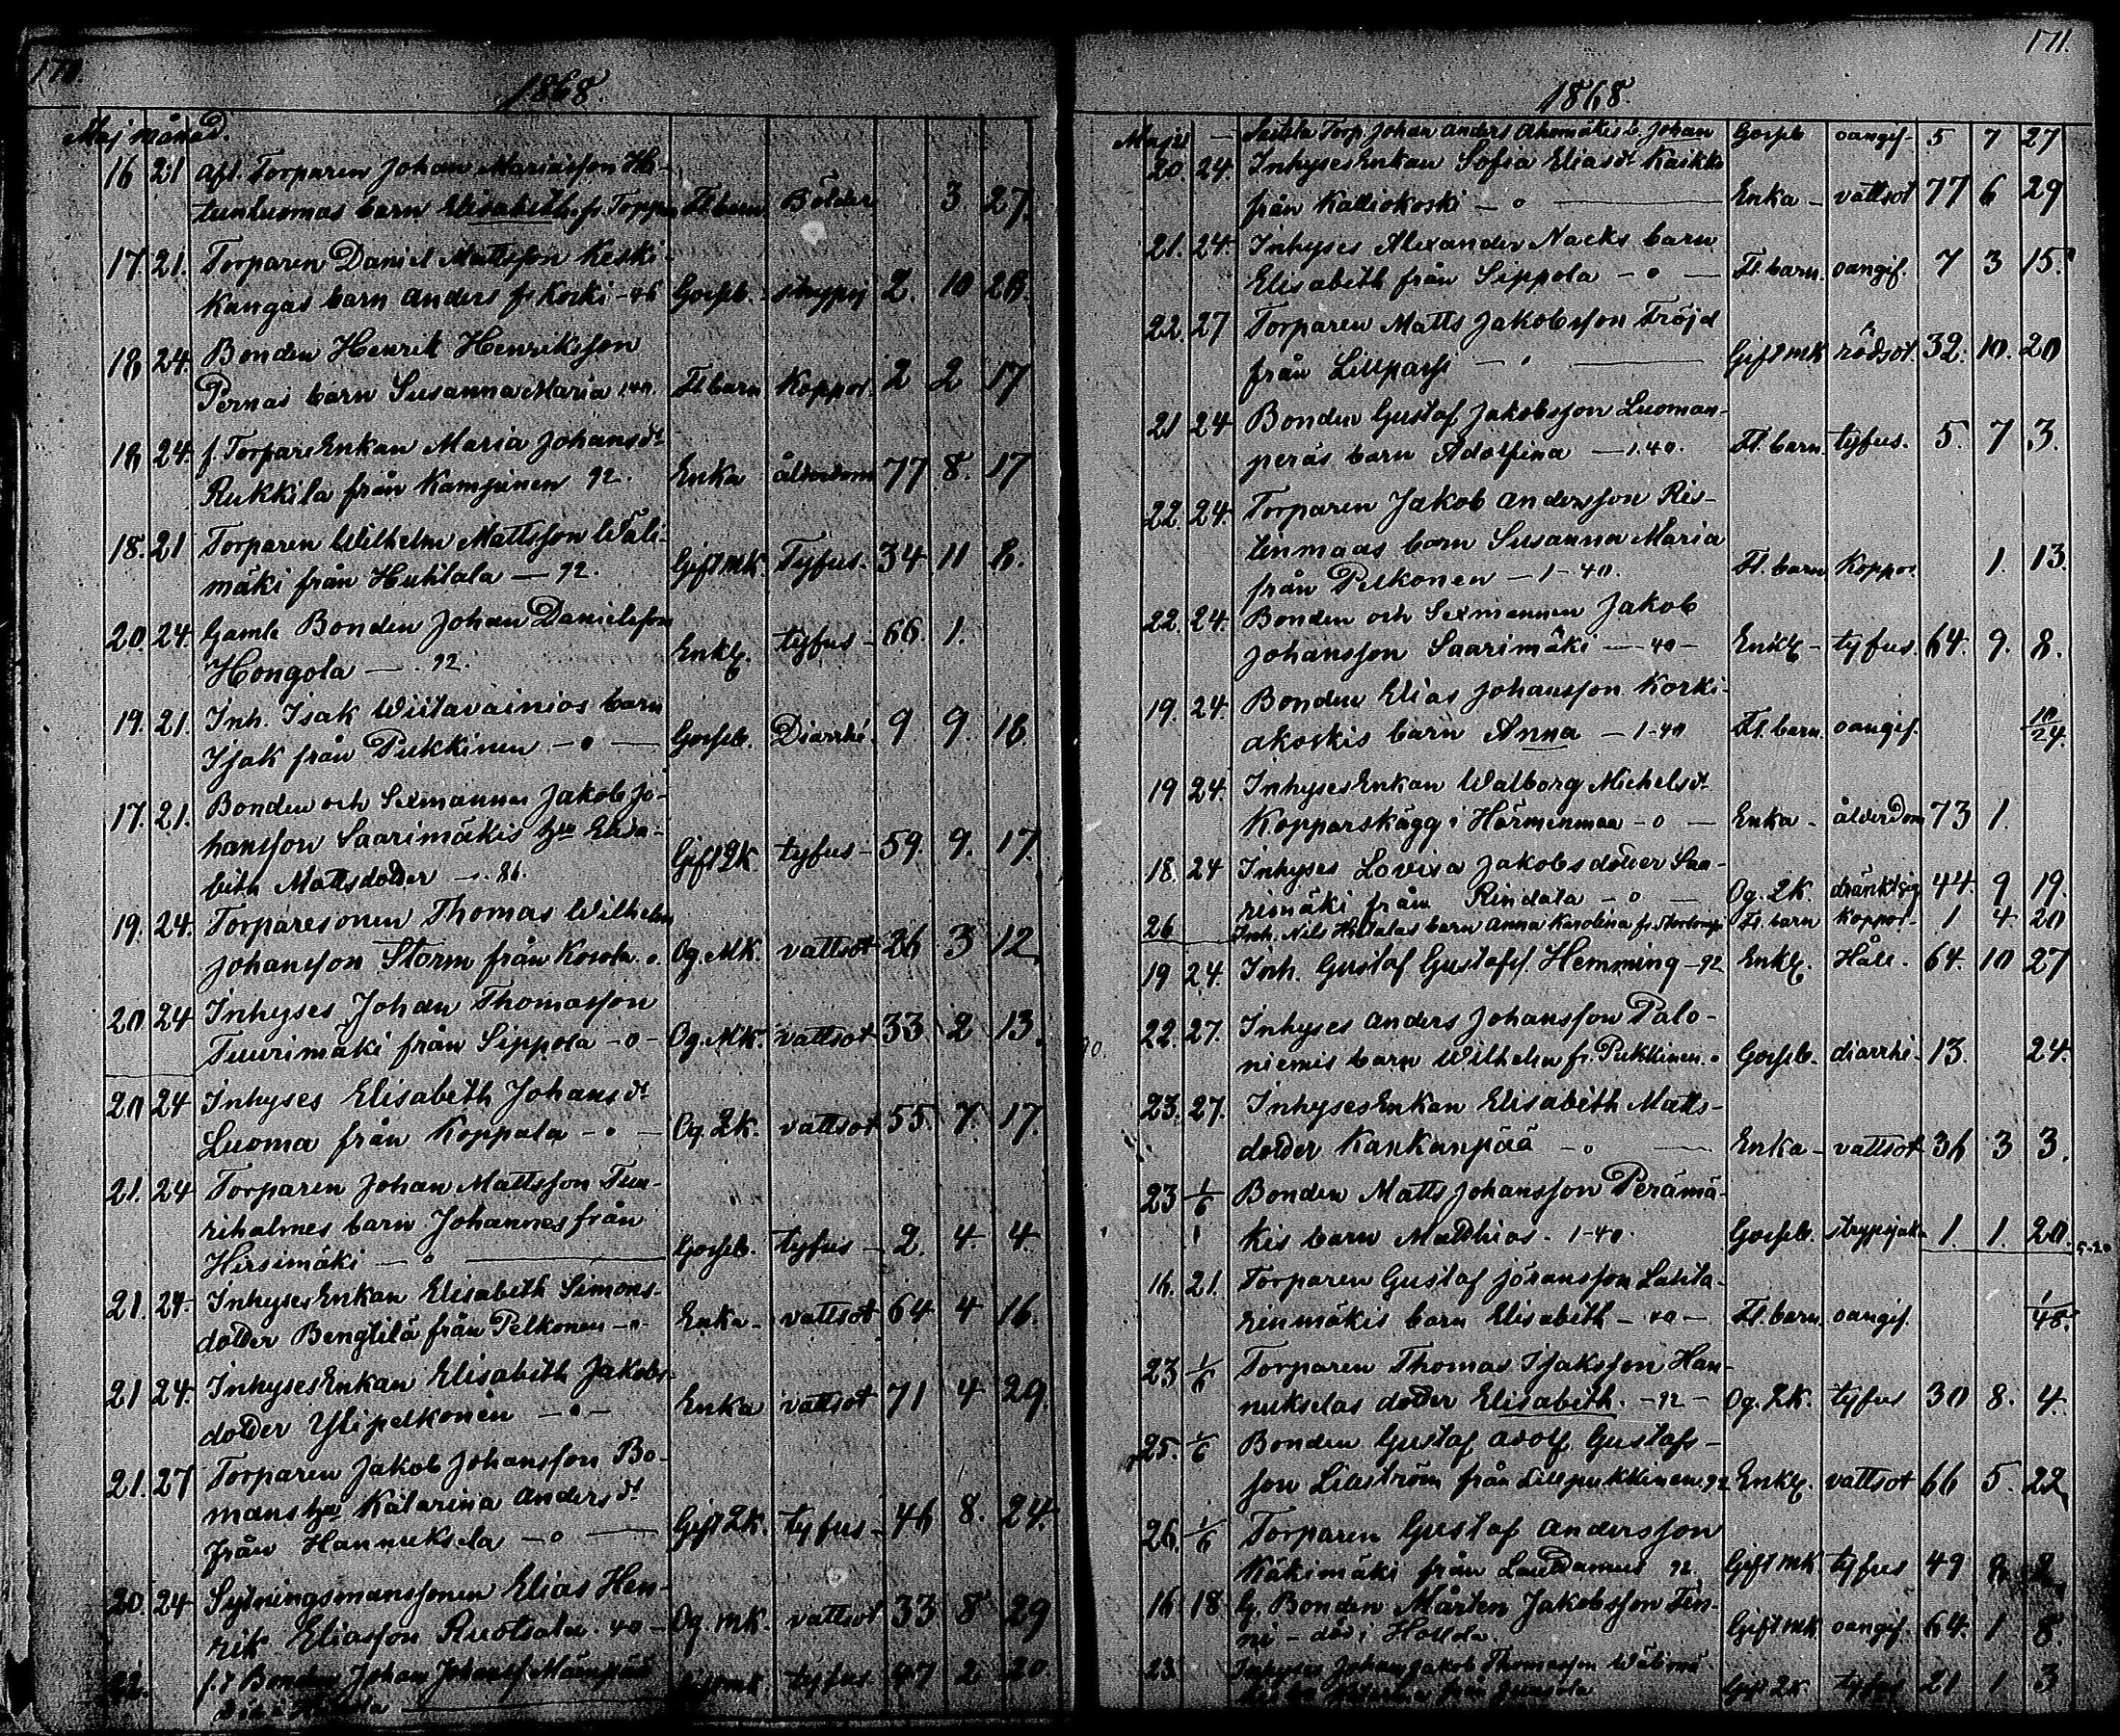 170.
1868.
Maj månad.
16 21 Afl. Torparen Johan Mariasson Hie-
tuntuomas barn Elisabeth fr Toppa Fl barn Bölder 3 27.
17. 21. Torparen Daniel Mattsson Keski-
kangas barn Anders fr Koski - 46 Gosseb. strypsj 2. 10 28.
18 24. Bonden Henrik Henriksson
Pernas barn Susanna Maria 1.40. Fl barn Koppor. 2 2 17
18 24. f. TorpareEnkan Maria Johansdr
Rukkila från Kamjunen 92. Enka ålderdom 77 8. 17
18. 21 Torparen Wilhelm Mattsson Wäli-
mäki från Huhtala — 92. Gift MK. Tyfus. 34 11 8.
20. 24. Gamle Bonden Johan Danielsson
Hongola — . 92. Enkl. tyfus - 66. 1.
19. 21. Inh. Isak Wiitavainios barn
Isak från Pukkinen - o — Gosseb. Diarrhé. 9 9. 18.
17. 21. Bonden och Sexmannen Jakob Jo-
hansson Saarimäkis hu Elisa-
beth Mattsdotter — . 86. Gift QK tyfus - 59. 9. 17.
19. 24. Torparesonen Thomas Wilhelm
Johansson Storm från Kosola. o. Og. MK. vattsot 26 3 12.
20 24 Inhyses Johan Thomasson
Tuurimäki från Sippola - o - Og. MK. vattsot 33. 2 13.
20 24 Inhyses Elisabeth Johansdr
Luoma från Koppala - o — Og. QK. vattsot 55. 7. 17.
21. 24 Torparen Johan Mattsson Tuu-
riholmes barn Johannes från
Hirsimäki — o — Gosseb. tyfus - 2. 4. 4.
21. 24. InhysesEnkan Elisabeth Simons-
dotter Bengtilä från Pelkonen - o - Enka - vattsot 64 4 16.
21 24. InhysesEnkan Elisabeth Jakobs-
dotter Ylipelkonen — o — Enka vattsot 71 4 29.
21. 27 Torparen Jakob Johansson Bo-
mans hu Katarina Andersdr
från Hannuksela - o — Gift QK. tyfus - 46 8. 24.
20. 24 Sytningsmanssonen Elias Hen-
rik Eliasson Ruotsala. 40 - Og. MK. vattsot 33 8 29
22. f.d Bonden Johan Johanss Mäenpää
tyfus 47 2 20
171.
1868.
Maji — Johan Anders Ahomäkis b. Johan Gosseb oangif. 5 7 27
20. 24. InhysesEnkan Sofia Eliasdr Kaikko
från Kalliokoski — o — Enka - vattsot 77 6 29
21. 24. Inhyses Alexander Nacks barn
Elisabeth från Sippola - o — Fl. barn. oangif. 7 3 15.
22. 27 Torparen Matts Jakobsson Fröjd
från Lillpassi — Gift MK rödsot. 32. 10. 20
21 24 Bonden Gustaf Jakobsson Luoman-
peräs barn Adolfina — 1.40. Fl. barn. tyfus. 5. 7 3.
22. 24. Torparen Jakob Andersson Ris-
tinmaas barn Susanna Maria
från Pelkonen - 1 - 40. Fl. barn Koppor. 1. 13.
22. 24. Bonden och Sexmannen Jakob
Johansson Saarimäki — 40 - Enkl - tyfus. 64. 9. 8.
19. 24. Bonden Elias Johansson Korki-
akoskis barn Anna - 1-40 Fl. barn. oangif. 10/24.
19 24. InhysesEnkan Walborg Michelsdr
Kopparskägg i Härmenmaa - o — Enka - ålderdom 73 1.
18. 24 Inhyses Lovisa Jakobsdotter Saa-
rimäki från Rindala - o — Og. QK. dränkt sig 44. 9 19.
26 Inh. Nils Hietalas barn Anna Karolina Fl. barn koppor. 1 4 20
19 24. Inh. Gustaf Gustafss. Hemming - 92 Enkl. Håll. 64. 10 27
22. 27. Inhyses Anders Johansson Palo-
niemis barn Wilhelm fr. Pukkinen. o Gosseb. diarrhé - 13. 24.
23. 27. InhysesEnkan Elisabeth Matts-
dotter Kankanpää - o — Enka - vattsot 36 3 3.
23 1/6 Bonden Matts Johansson Perämä-
kis barn Matthias. 1-40. Gosseb. strypsjuka 1. 1. 20. 5-20
16. 21. Torparen Gustaf Johansson Lahta-
rinmäkis barn Elisabeth - 40 - Fl. barn oangif. 1/48.
23 1/6 Torparen Thomas Isaksson Han-
nukselas dotter Elisabeth. - 92 - Og. QK. tyfus 30 8. 4.
25. 1/6 Bonden Gustaf Adolf Gustafs-
son Liaström från Lillpukkinen. 92 Enkl. vattsot 66 5. 22.
26. 1/6 Torparen Gustaf Andersson
Käkimäki från Lauttamus 92. Gift MK tyfus 49 8. 2.
16. 18 G. Bonden Mårten Jakobsson Fin-
ni - död i Hollola. Gift MK. oangif. 64. 1 8.
23. Inhyses Johan Jakob Thomasson Wälimä-
Gift QK tyfus 21 1 3